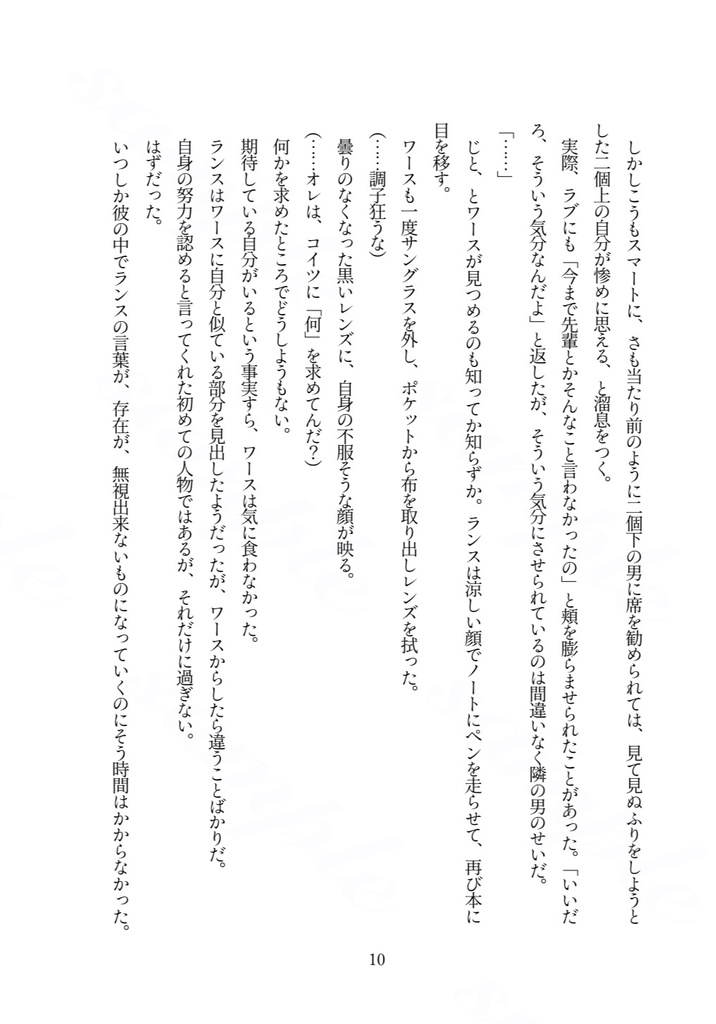 しかしこうもスマートに、さも当たり前のように二個下の男に席を勧められては、見て見ぬふりをしようと
した二個上の自分が惨めに思える、と溜息をつく。
実際、ラブにも「今まで先輩とかそんなこと言わなかったの」と頬を膨らませられたことがあった。「いいだ
ろ、そういう気分なんだよ」と返したが、そういう気分にさせられているのは間違いなく隣の男のせいだ。
「……」
じと、とワースが見つめるのも知ってか知らずか。ランスは涼しい顔でノートにペンを走らせて、再び本に
目を移す。
ワースも一度サングラスを外し、ポケットから布を取り出しレンズを拭った。
(……調子狂うな)
曇りのなくなった黒いレンズに、自身の不服そうな顔が映る。
(……オレは、コイツに「何」を求めてんだ?)
何かを求めたところでどうしようもない。
期待している自分がいるという事実すら、ワースは気に食わなかった。
ランスはワースに自分と似ている部分を見出したようだったが、ワースからしたら違うことばかりだ。
自身の努力を認めると言ってくれた初めての人物ではあるが、それだけに過ぎない。
はずだった。
いつしか彼の中でランスの言葉が、存在が、無視出来ないものになっていくのにそう時間はかからなかった。
10